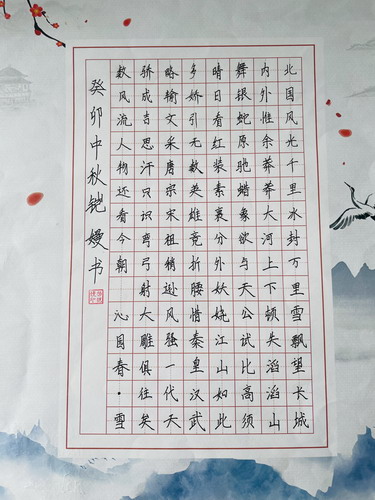 北国风光千里冰封万里雪飘望长城
内外惟余莽莽大河上下顿失滔滔山
舞银蛇原驰蜡象欲与天公试比高须
晴日看红装素裹分外妖娆江山如此
多娇引无数英雄竞折腰惜秦皇汉武
略输文采唐宗宋祖稍逊风骚一代天
骄成吉思汗只识弯弓射大雕俱往矣
数风流人物还看今朝 沁园春·雪
癸卯中秋铠嫚书